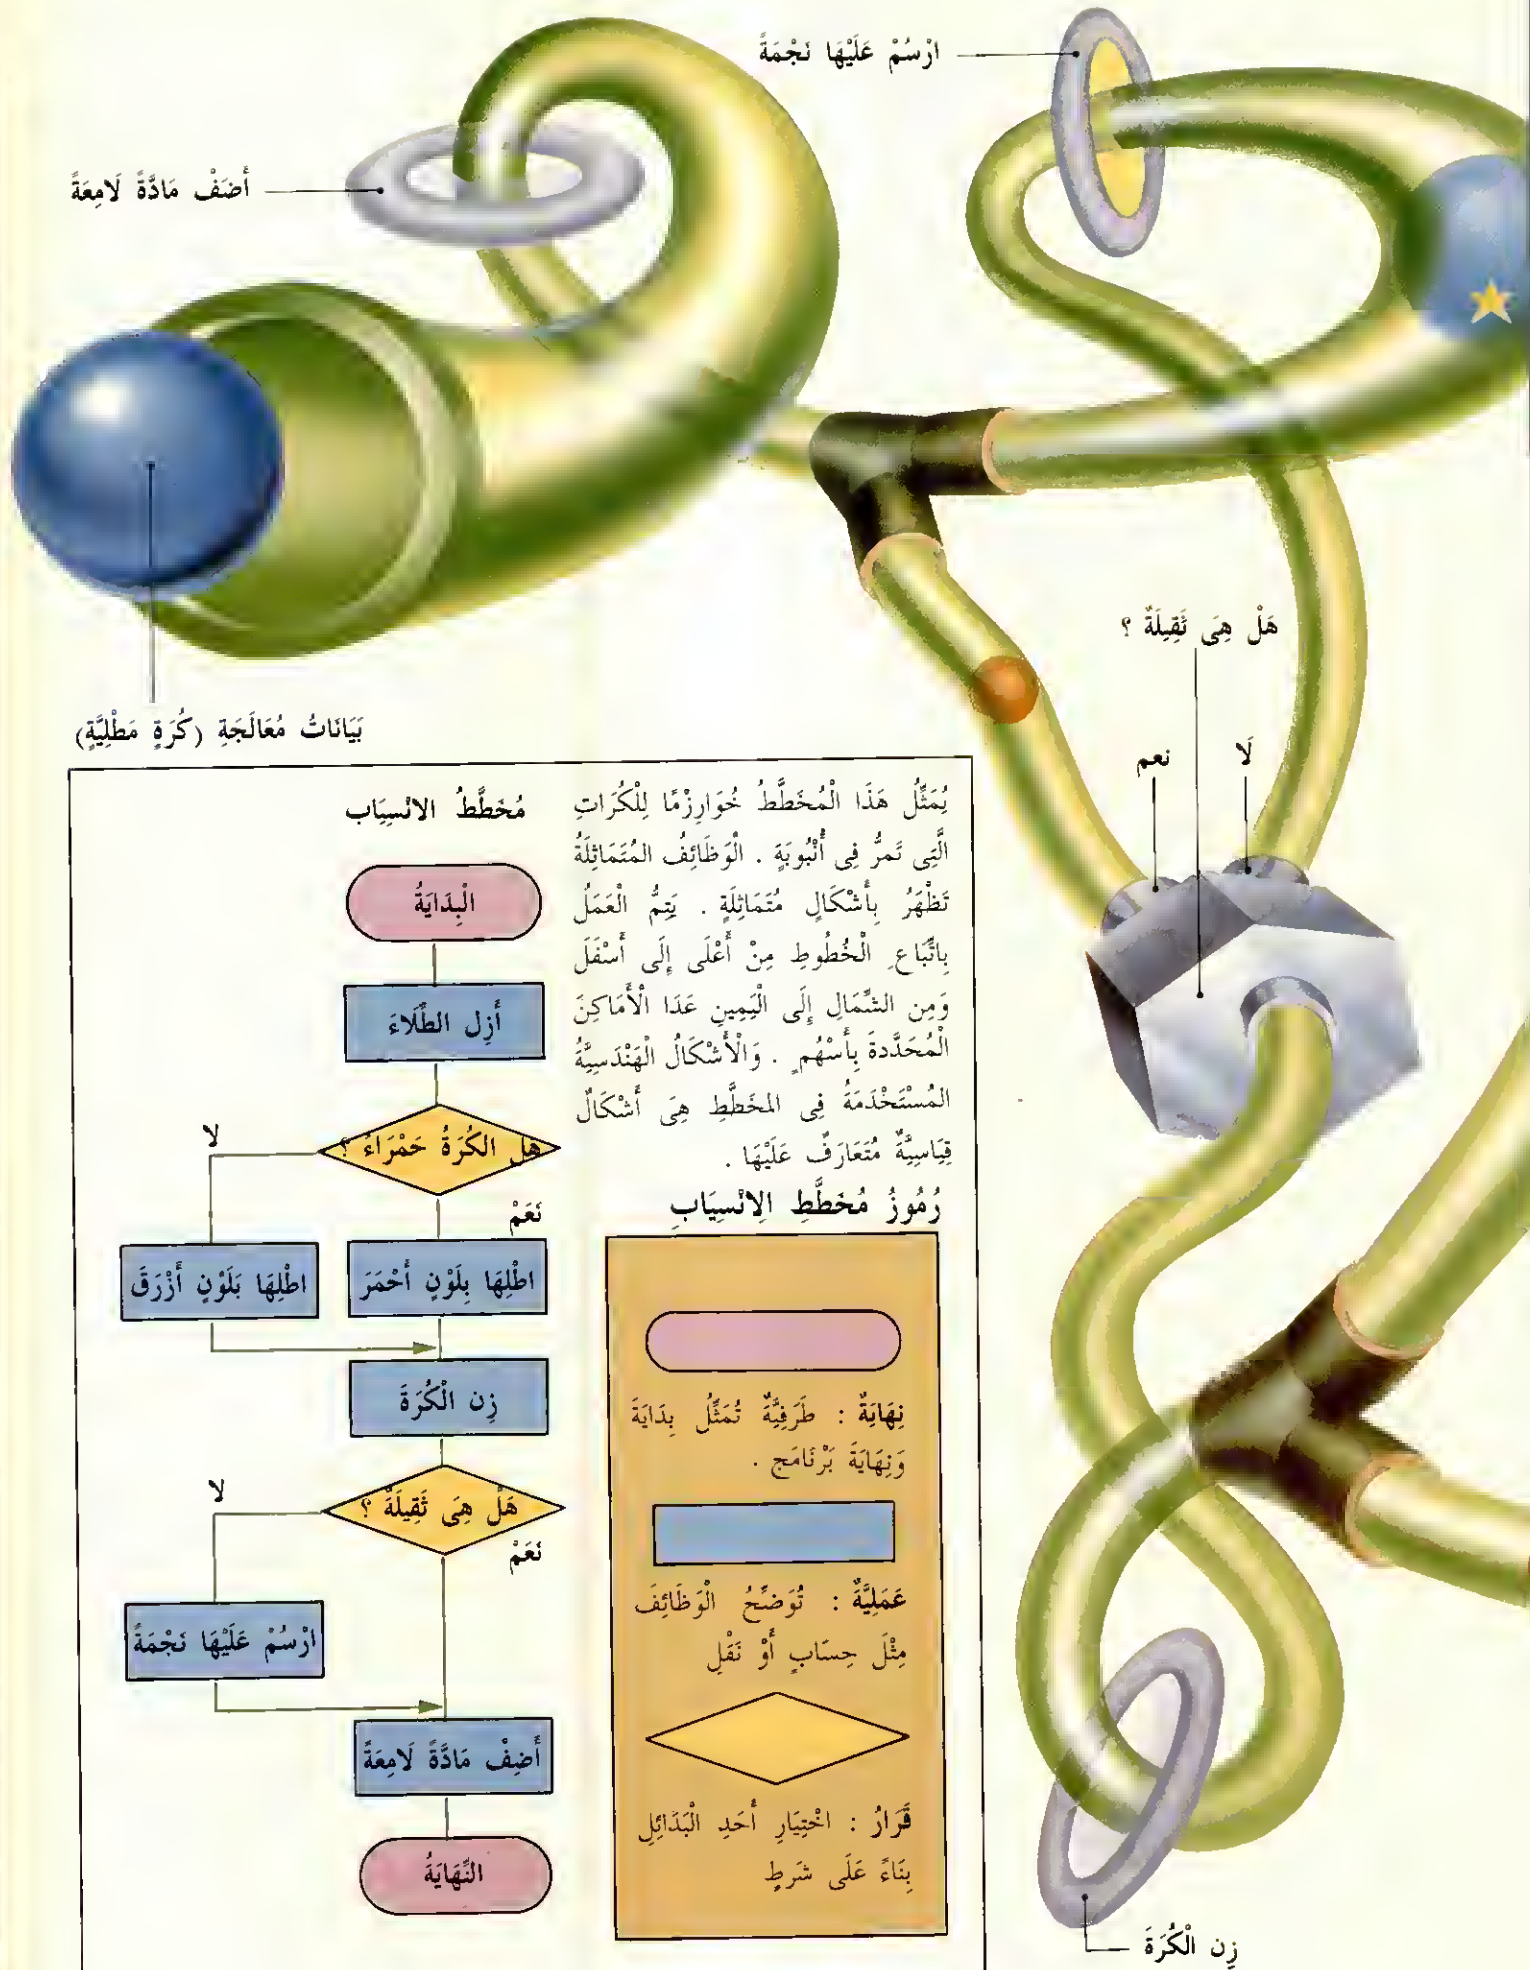 ارْسُمْ عَلَيْهَا نَجْمَةً
أَضَفْ مَادَّةً لَامِعَةً
هَلْ هِىَ ثَقِيلَةٌ ؟
لَا
نعم
بَيَانَاتُ مُعَالَجَةِ (كُرَةٍ مَطْلِيَّةٍ)
يُمَثِّلُ هَذَا الْمُخَطَّطُ خُوَارِزْمًا لِلْكُرَاتِ
الَّتِى تَمرُّ فِى أُنْبُوبَةٍ . الْوَظَائِفُ المُتَمَاثِلَةُ
تَظْهَرُ بِأَشْكَالٍ مُتَمَاثِلَةٍ . يَتِمُّ الْعَمَلُ
بِاتِّبَاعِ الْخُطُوطِ مِنْ أَعْلَى إِلَى أَسْفَلَ
وَمِن الشِّمَالِ إِلَى الْيَمِينِ عَدَا الْأَمَاكِنَ
الْمُحَدَّدةَ بِأَسْهُمٍ . وَالْأَشْكَالُ الْهَنْدَسِيَّةُ
المُسْتَخْدَمَةُ فِى المخَطَّطِ هِىَ أَشْكَالٌ
قِيَاسِيَّةٌ مُتَعَارَفٌ عَلَيْهَا .
رُمُوزُ مُخَطَّطِ الِانْسِيَابِ
نِهَايَةٌ : طَرَفِيَّةٌ تُمَثِّلُ بِدَايَةَ
وَنِهَايَةَ بَرْنَامَج .
عَمَلِيَّةٌ : تُوَضِّحُ الْوَظَائِفَ
مِثْلَ حِسَابٍ أَوْ نَقْلِ
قَرَارُ : اخْتِيَارِ أَحَدِ الْبَدَائِلِ
بِنَاءً عَلَى شَرطٍ
مُخَطَّطُ الانْسِيَاب
الْبِدَايَةُ
أَزِل الطِّلَاءَ
هل الكُرَةُ حَمْرَاءُ ؟
لا
نَعَمْ
اطْلِهَا بِلَوْنٍ أَحْمَرَ
اطْلِهَا بَلَوْنٍ أَزْرَقَ
زِن الْكُرَةَ
هَلْ هِىَ ثَقِيلَةٌ ؟
لا
نَعَمْ
ارْسُمْ عَلَيْهَا نَجْمَةً
أَضِفْ مَادَّةً لَامِعَةً
النِّهَايَةُ
زِن الْكُرَةَ